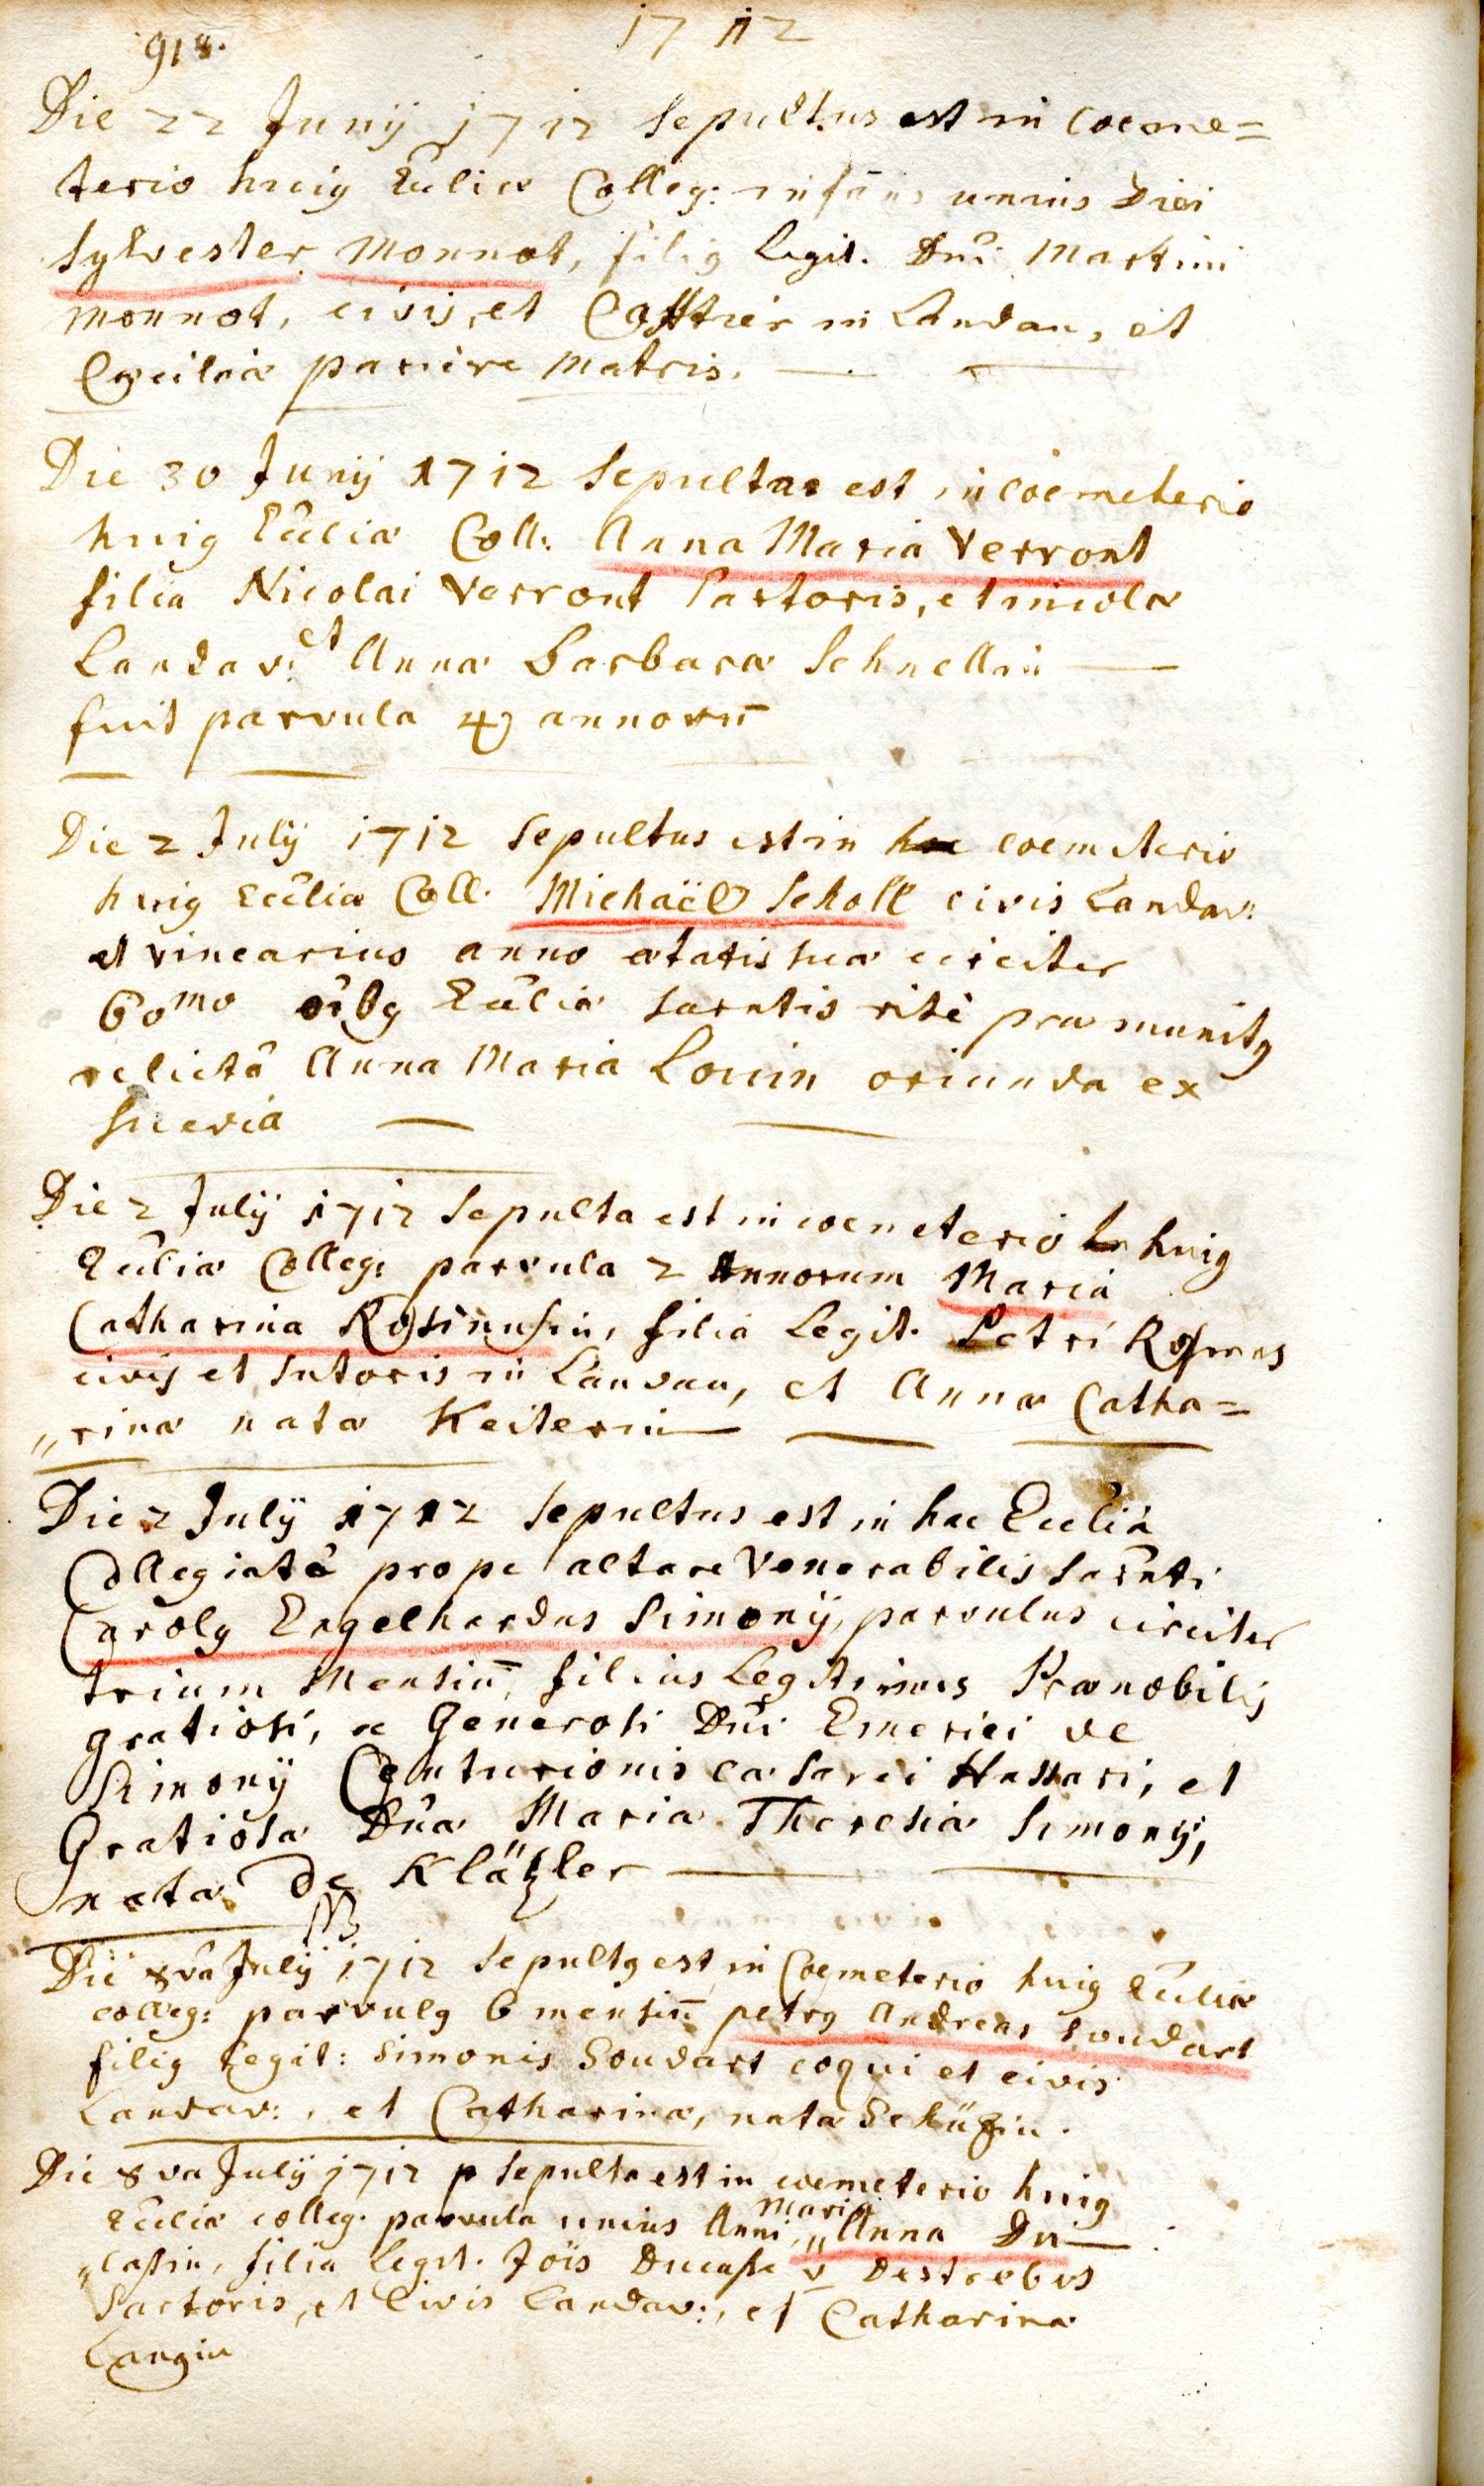 918.
1712
Die 22 Junij 1712 Sepultus est in Coeme=
terio huig Eccliæ Colleg: infans unius Diei
Sylvester Monnot, filig Legit. Dni Martini
Monnot, civis, et in Landau, et
Cæciliæ matris.
Die 30 Junij 1712 Sepultae est in coemeterio
huig Eccliæ Coll: Anna Maria Verront
filia Nicolai Verront Sartoris, et incolæ
Landav: et Annæ Barbaræ Schnellin
fuit parvula 4 annorū
Die 2 Julij 1712 Sepultus est in coemeterio
huig Eccliæ Coll. Michaël Scholl civis Landav:
et vinearius anno ætatis suæ circiter
60mo oîbg Eccliæ Sacrâtis ritè præmunitg
relictâ Anna Maria Louin oriunda ex
Suevia
Die 2 Julij 1712 Sepulta est in coemeterio huig
Eccliæ Colleg: parvula 2 Annorum Maria
Catharina Rosinusin, filia Legit. Petri Rosinus
civis et Sutoris in Landau, et Annæ Catha=
„rinæ natæ Keiterin
Die 2 Julij 1712 Sepultus est in hac Ecclia
Collegiatâ prope altare Venerabilis Sacrâti
Carolg Engelhardus Simonij, parvulus circiter
trium Mensiū, filius Legitimus Prænobilis
gratiosi, ac Generosi Dni Emerici de
Simonij Centurionis Cæsarei Hassari, et
Gratiosæ Dnæ Mariæ Theresiæ Simonij,
natæ De Klätzler
Die 8va Julij 1712 Sepultg est in Coemeterio huig Eccliæ
colleg: parvulg 6 mensiū petrg Andreas Soudart
filig Legit: Simonis Soudart coqui et civis
Landav:, et Catharinæ, natæ Schüzin.
Die 8va Julij 1712 p Sepulta est in coemeterio huig
Eccliæ colleg. parvula unius Anni, „Anna Maria Du—
„cassin, filia Legit. Jois Ducasse v Destrebes
Sartoris, et Civis Landav:, et Catharinæ
Langin